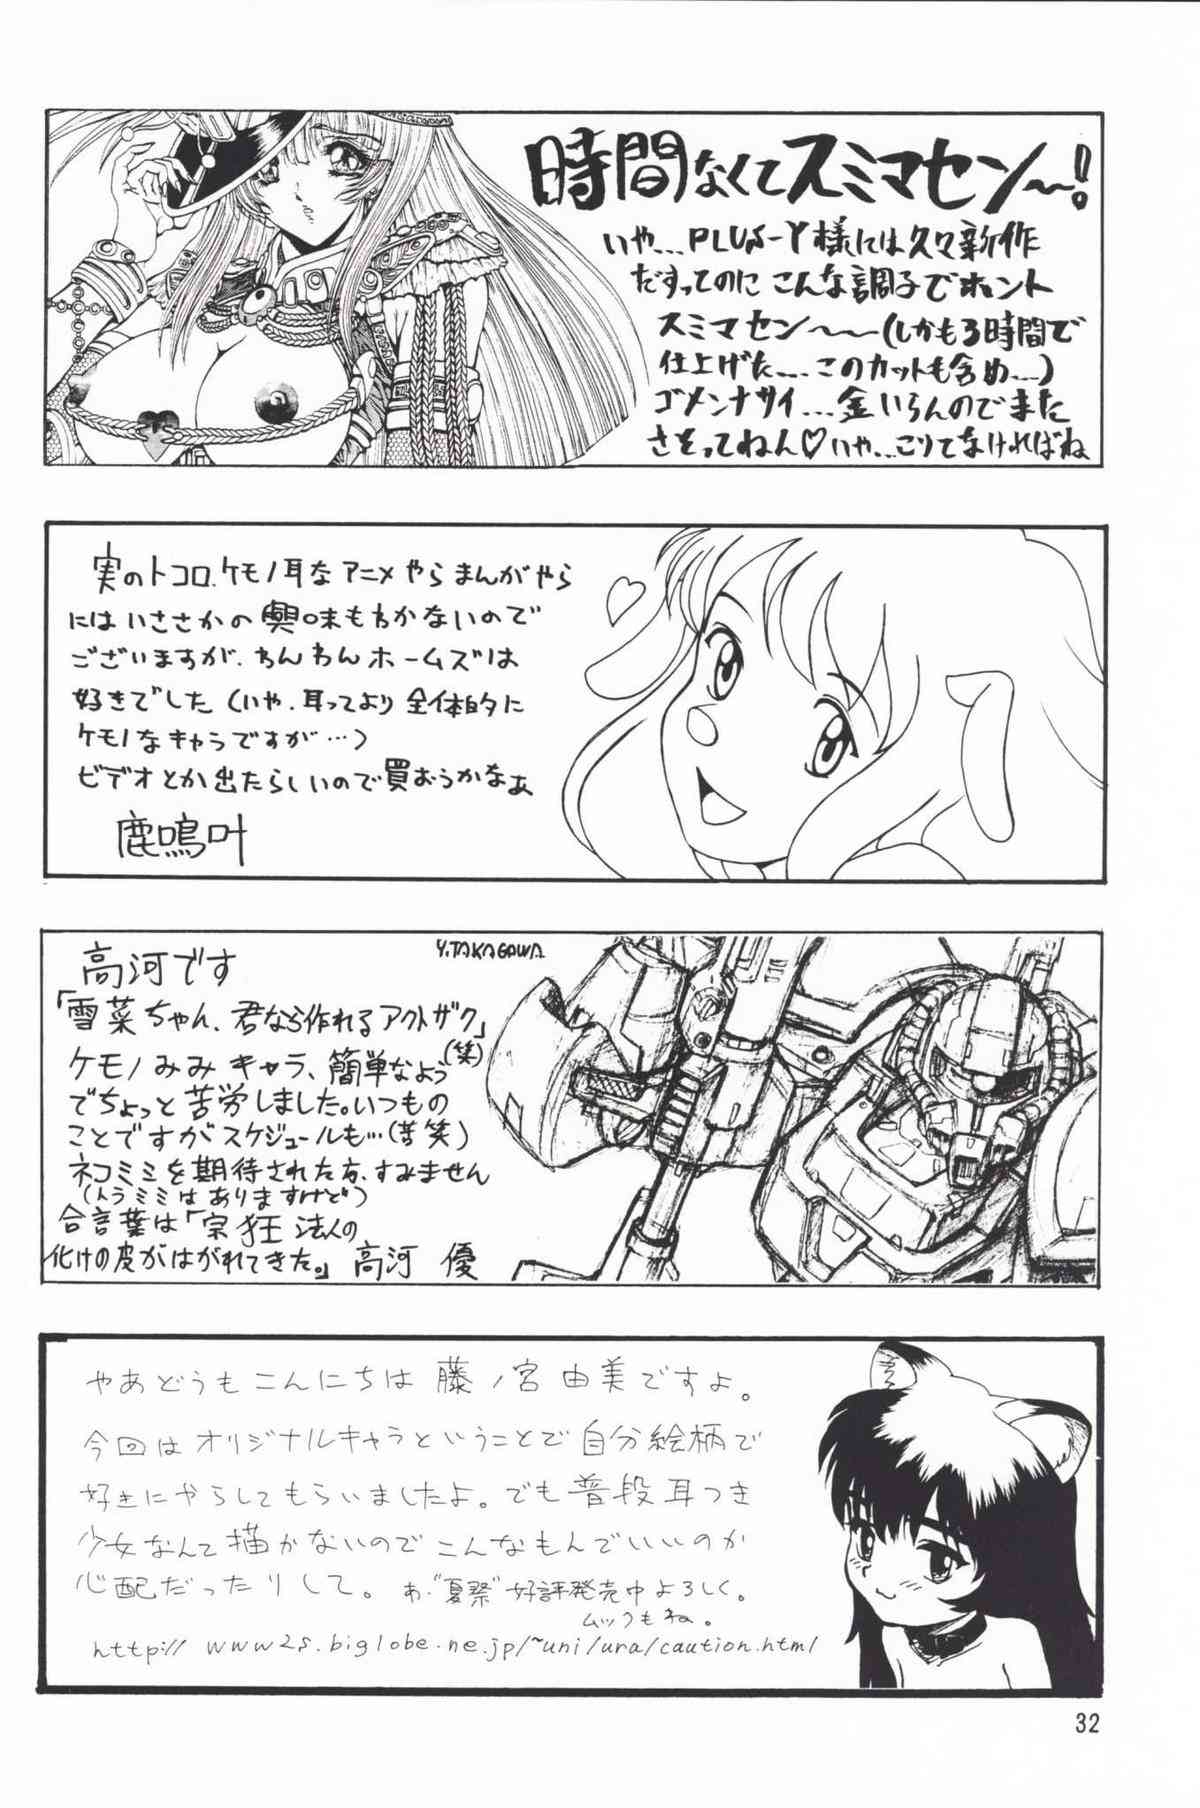 時間なくてスミマセン〜!
いや… PLUS-Y様には久々新作
だすってのに こんな調子でホント
スミマセン〜〜(しかも3時間で
仕上げた…… このカットも含め……)
ゴメンナサイ… 金いらんのでまた
さそってねん♡いや…こりてなければね
実のトコロ、ケモノ耳なアニメやらまんがやら
にはいささかの興味もわかないので
ございますが、わんわんホームズは
好きでした(いや、耳ってより全体的に
ケモノなキャラですが…)
ビデオとか出たらしいので買おうかなぁ
鹿鳴叶
Y.TAKAGAWA
高河です
「雪菜ちゃん、君なら作れるアクトザク」
(笑)
ケモノみみキャラ、簡単なよう
でちょっと苦労しました。いつもの
ことですがスケジュールも…(苦笑)
ネコミミを期待された方、すみません
(トラミミはありますけど)
合言葉は「宗狂法人の
化けの皮がはがれてきた。」 高河 優
やあどうもこんにちは 藤ノ宮由美ですよ。
今回はオリジナルキャラということで自分絵柄で
好きにやらしてもらいましたよ。でも普段耳つき
少女なんて描かないのでこんなもんでいいのか
心配だったりして。 あ、"夏祭"好評発売中よろしく。
ムックもね。
http:// www2s.biglobe.ne.jp/~uni/ura/caution.html
32